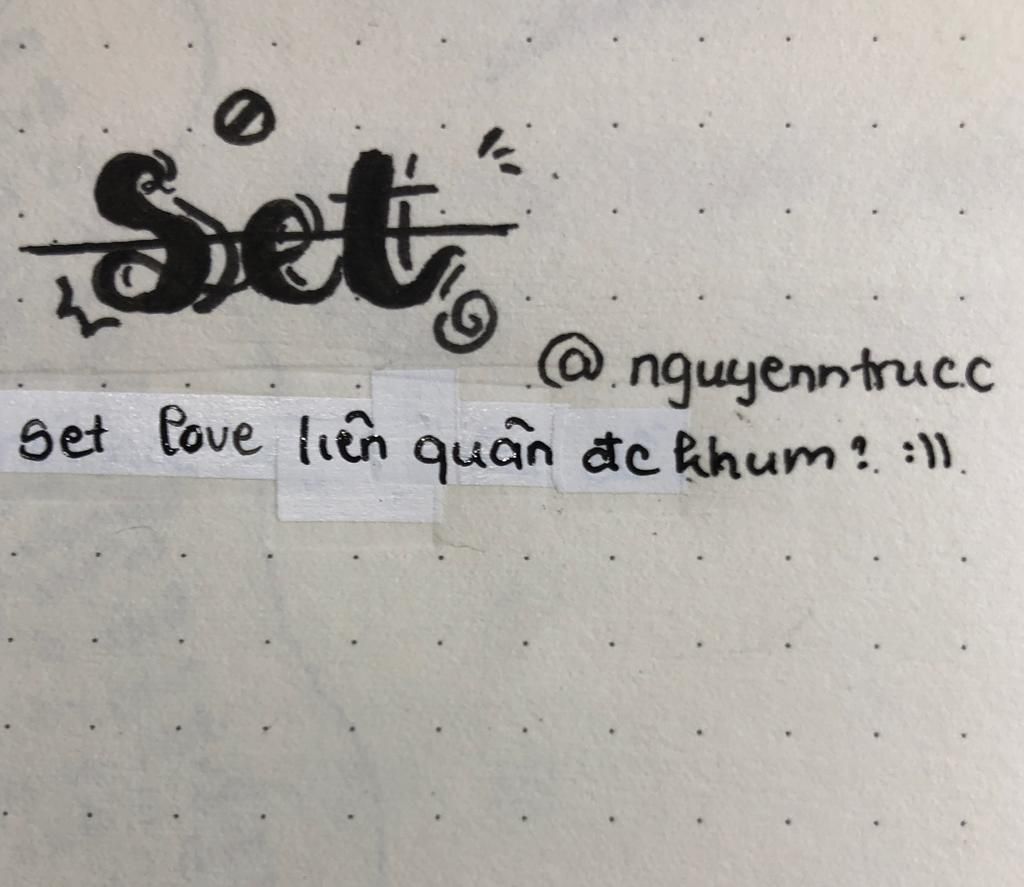 Set
@nguyenntrucc
set love liên quân đc khum? :)))